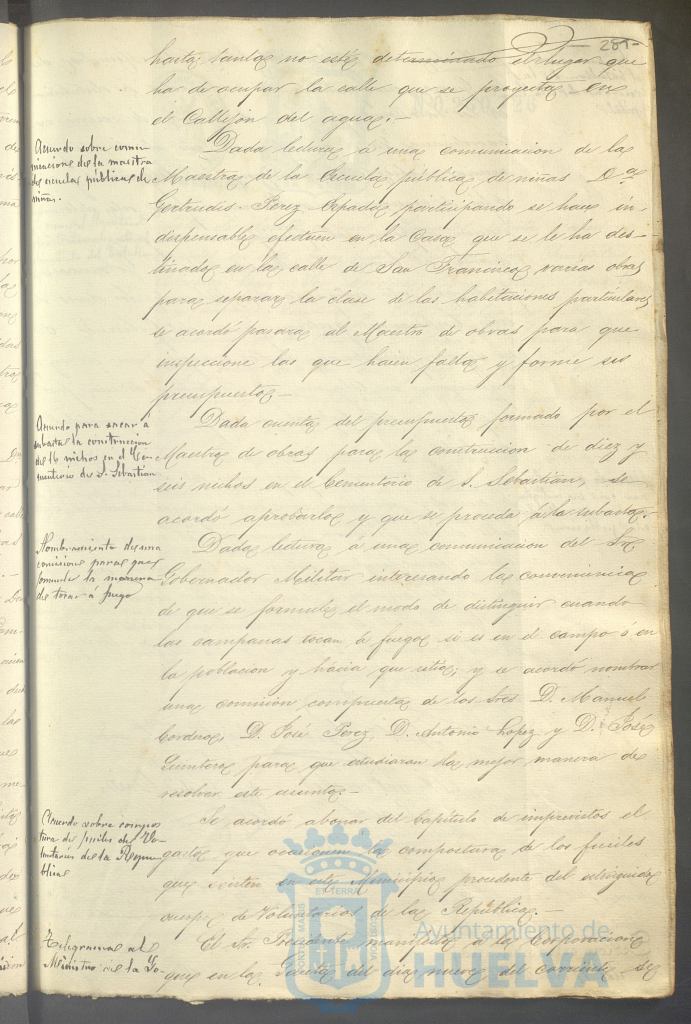 281
hasta tanto no esté determinado el lugar que
ha de ocupar la calle que se proyecta en
el Callejón del agua.-
Acuerdo sobre comu-
nicacione de la maestra
de escuelas públicas de
niñas.
Dada lectura á una comunicacion de la
Maestra de la Escuela pública de niñas Dª
Gertrudis Perez participando se hace in
dispensable efectuen en la Casa que se le ha des-
tinado en la calle de San Francisco varias obras
para separar la clase de las habitaciones particulares
se acordó pasara al Maestro de obras para que
inspeccione las que hacen falta y forme su
presupuesto-
Acuerdo para sacar á
subasta la construccion
de 16 nichos en el Ce-
menterio de S. Sebastian
Dada cuenta del presupuesto formado por el
Maestro de obras para la construccion de diez y
seis nichos en el Cementerio de S. Sebastián, se
acordó aprobarlo y que se proceda á la subasta.
Nombramiento de una
comisione para que
formule la manera
de tocar á fuego
Dada lectura á una comunicacion del Sr
Gobernador Militar interesando la conveniencia
de que se formule el modo de distinguir cuando
las campanas tocan á fuego si es en el campo ó en
la poblacion y hácia que sitio; y se acordó nombrar
una comisión compuesta de los Sres D. Manuel
Cordero, D. José Perez, D. Antonio Lopez y D. José
para que estudiaran la mejor manera de
resolver este asunto-
Acuerdo sobre compos
tura de fusiles de Vo-
luntarios de la Repu-
blica
Se acordó abonar del Capítulo de imprevistos el
gasto que ocasionen la compostura de los fusiles
que existen en este Municipio procedente del extinguido
cuerpo de Voluntarios de la República.-
Telegrama al
Ministro de la Go-
El Sr. Presidente manifestó á la Corporacion
que en la Gaceta del dia nueve del corriente se
Ayuntamiento de
HUELVA